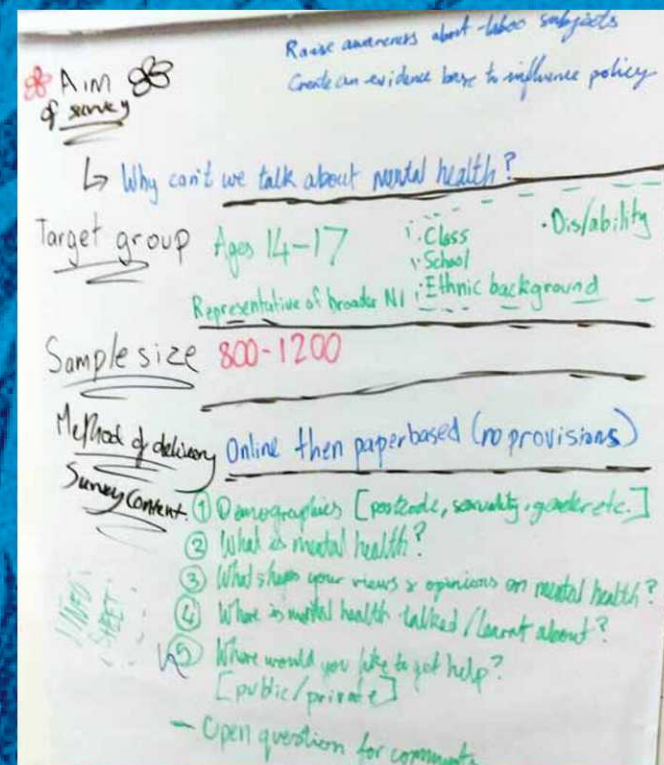 Raise awareness about taboo subjects
Create an evidence base to influence policy
Aim
of survey
↳ Why can't we talk about mental health?
Target group Ages 14-17
Class
School
Ethnic background
Dis/ability
Representative of broader NI
Sample size 800-1200
Method of delivery Online then paperbased (no provisions)
Survey Content. ① Demographics [postcode, sexuality, gender etc.]
② What is mental health?
③ What shapes your views & opinions on mental health?
④ Where is mental health talked/learnt about?
⑤ Where would you like to get help?
[public/private]
- Open question for comments
INFO
SHEET